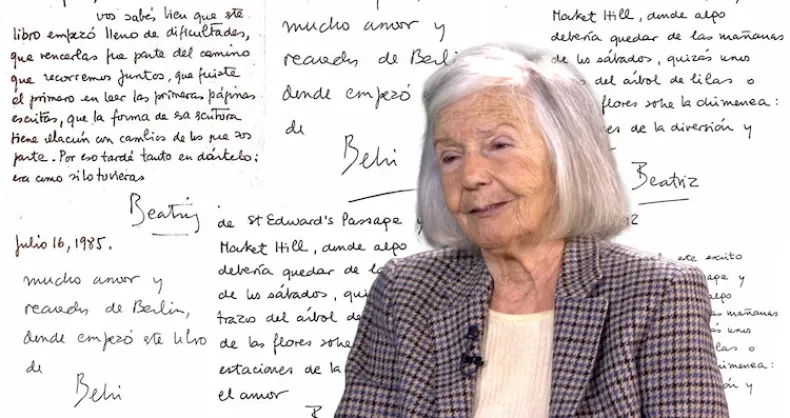 vos sabés, bien que este
libro empezó lleno de dificultades,
que vencerlas fue parte del camino
que recorrimos juntos, que fuiste
el primero en leer las primeras páginas
escritas, que la forma de esa escritura
tiene relación con cambios de los que sos
parte. Por eso tardé tanto en dártelo:
era como si lo tuvieras
Beatriz
Julio 16, 1985.
mucho amor y
recuerdos de Berlin,
donde empezó este libro
de
Behi
mucho amor y
recuerdos de Berlin
donde empezó
de
Behi
Market Hill, donde algo
debería quedar de las mañanas
de los sábados, quizás unos
del árbol de lilas o
flores sobre la chimenea:
de la diversión y
Beatriz
de St Edward's Passage y
Market Hill, donde algo
debería quedar de la
de los sábados, qui
trazos del árbol de
de las flores sobre
estaciones de la
el amor
B
este escrito
y
algo
mañanas
unos
o
chimenea:
y